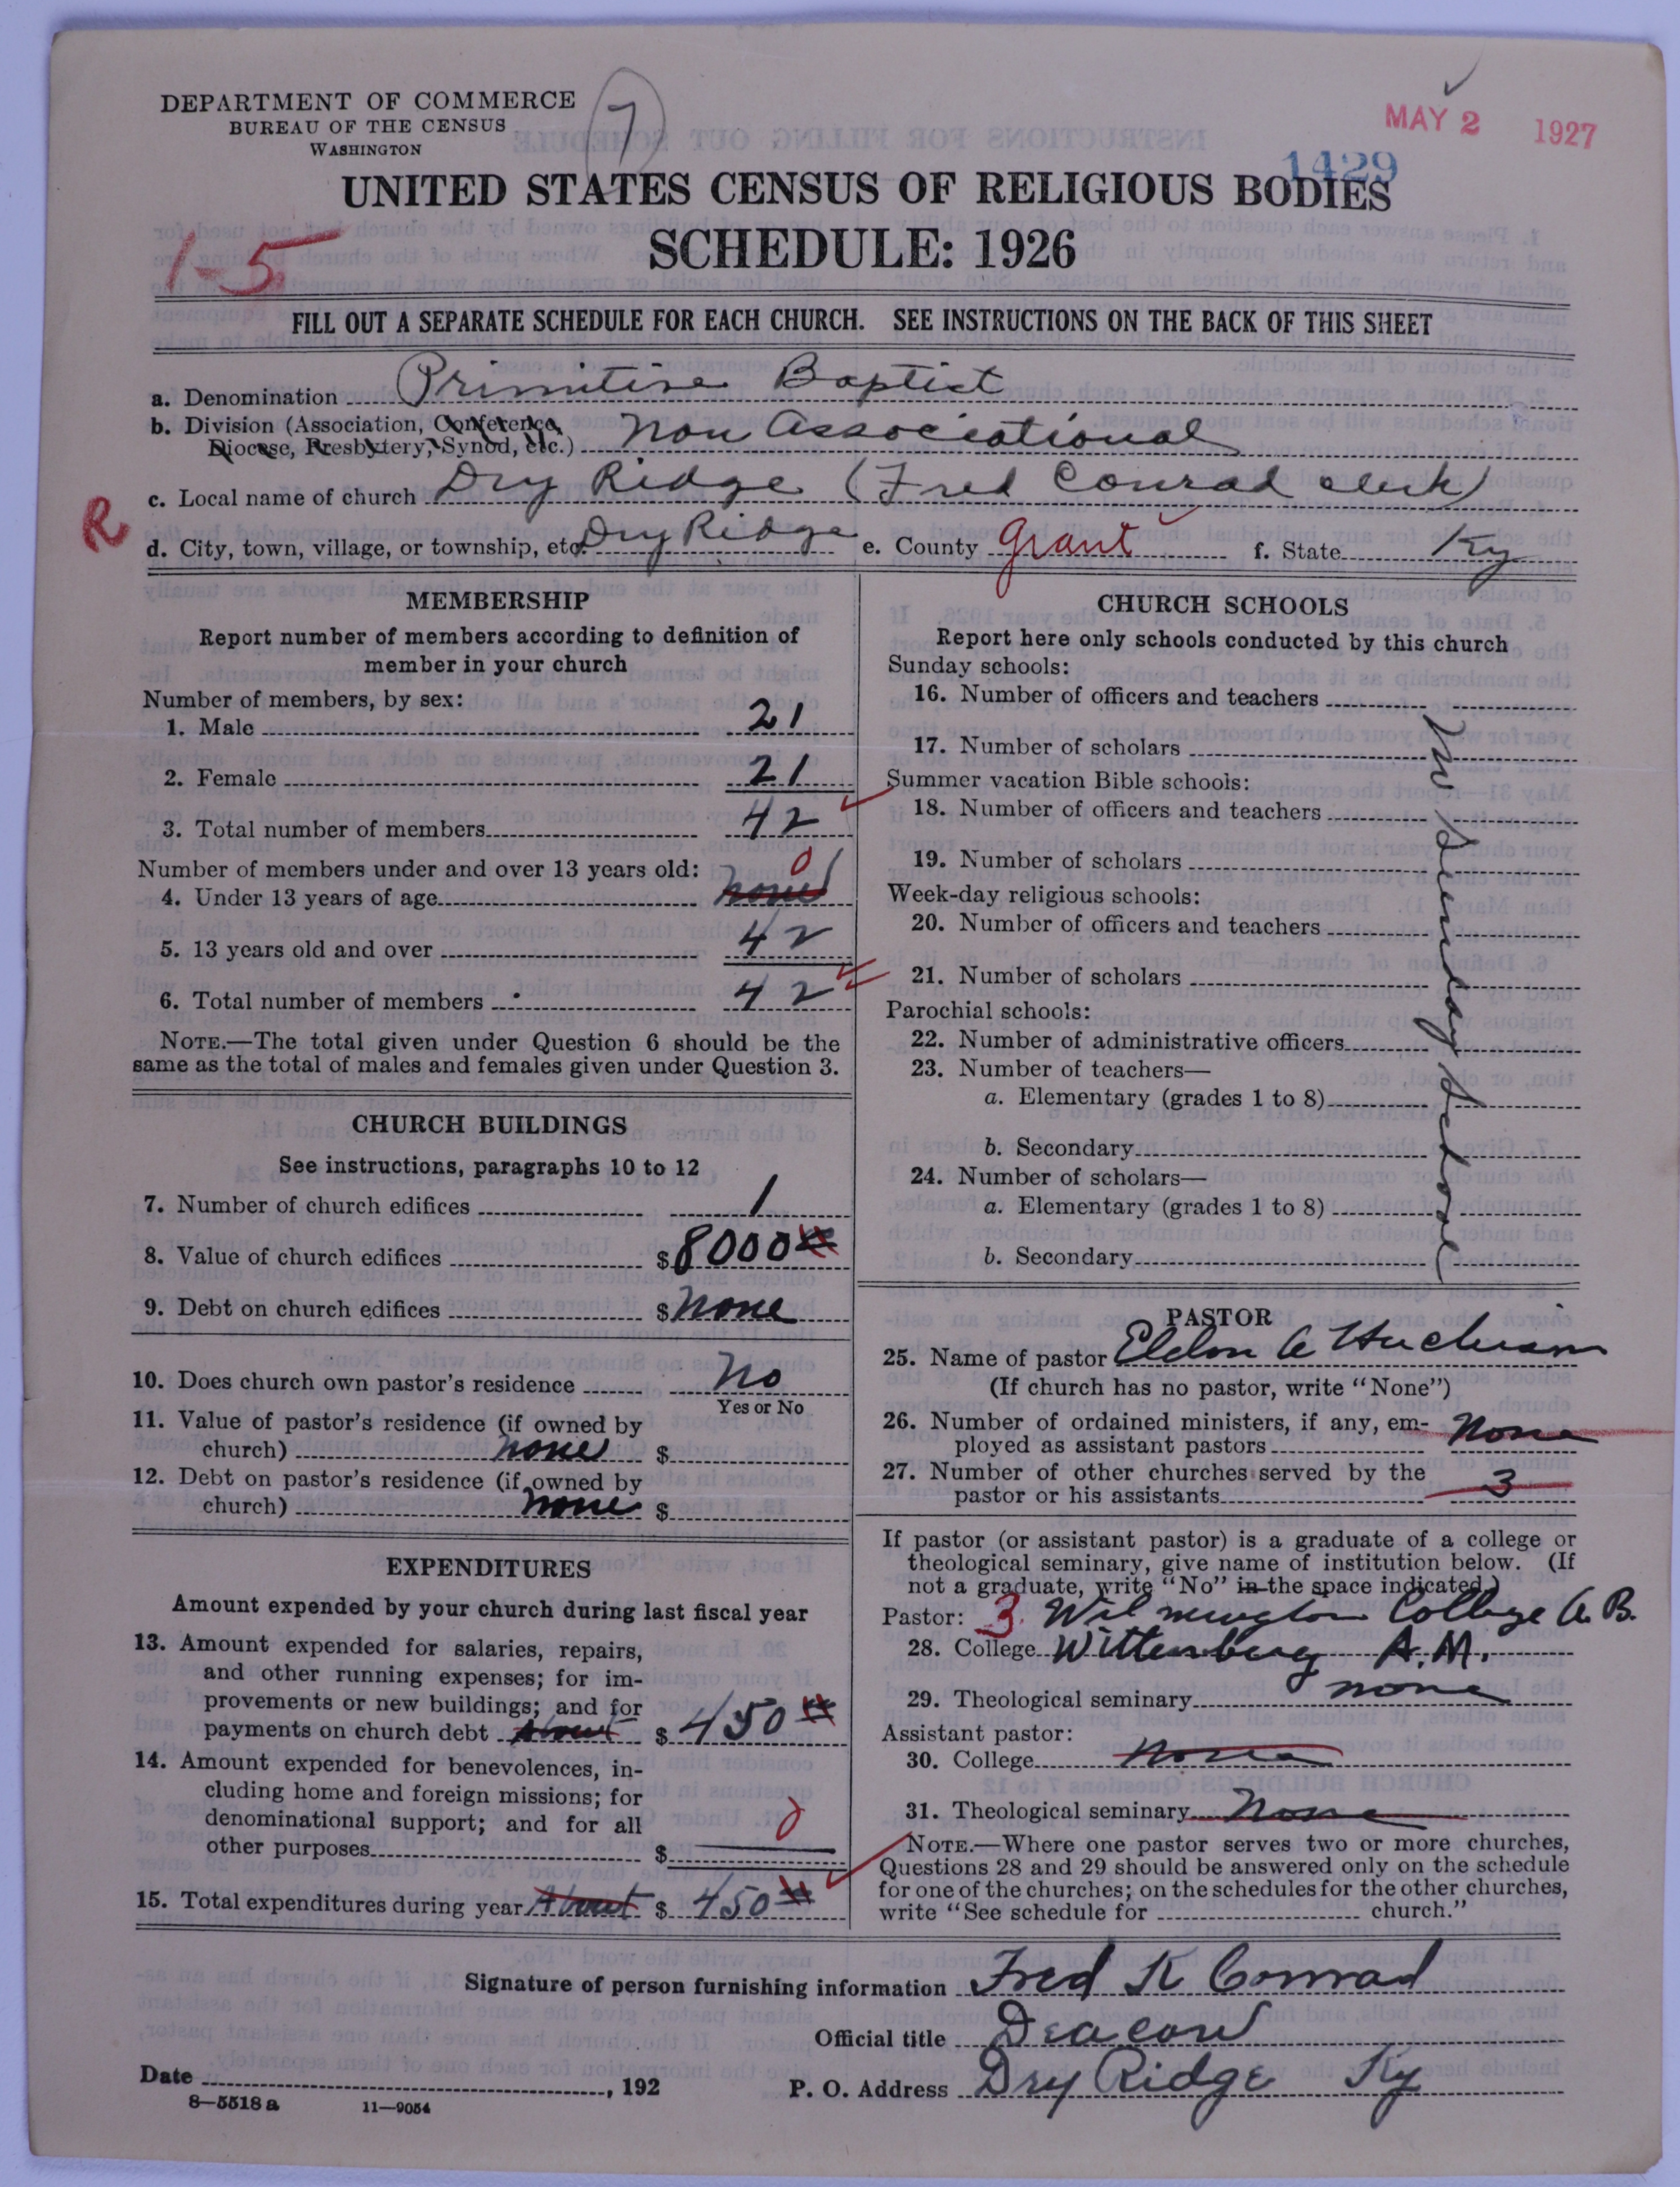 DEPARTMENT OF COMMERCE
BUREAU OF THE CENSUS
WASHINGTON
7
MAY 2 1927
1429
UNITED STATES CENSUS OF RELIGIOUS BODIES
SCHEDULE: 1926
1-5
FILL OUT A SEPARATE SCHEDULE FOR EACH CHURCH. SEE INSTRUCTIONS ON THE BACK OF THIS SHEET
a. Denomination Primitive Baptist
b. Division (Association, Conference,
Diocese, Presbytery, Synod, etc.) Non Associational
c. Local name of church Dry Ridge (Fred Conrad clerk)
R
d. City, town, village, or township, etc. Dry Ridge e. County Grant f. State Ky
MEMBERSHIP
Report number of members according to definition of
member in your church
Number of members, by sex:
1. Male 21
2. Female 21
3. Total number of members 42
Number of members under and over 13 years old: 0
4. Under 13 years of age none
5. 13 years old and over 42
6. Total number of members 42
NOTE.—The total given under Question 6 should be the
same as the total of males and females given under Question 3.
CHURCH BUILDINGS
See instructions, paragraphs 10 to 12
7. Number of church edifices 1
8. Value of church edifices $8000
9. Debt on church edifices $None
10. Does church own pastor's residence No
Yes or No
11. Value of pastor's residence (if owned by
church) none $
12. Debt on pastor's residence (if owned by
church) none $
EXPENDITURES
Amount expended by your church during last fiscal year
13. Amount expended for salaries, repairs,
and other running expenses; for im-
provements or new buildings; and for
payments on church debt About $ 450
14. Amount expended for benevolences, in-
cluding home and foreign missions; for
denominational support; and for all
other purposes $ 0
15. Total expenditures during year About $ 450
CHURCH SCHOOLS
Report here only schools conducted by this church
Sunday schools:
16. Number of officers and teachers
17. Number of scholars
Summer vacation Bible schools:
18. Number of officers and teachers
19. Number of scholars
Week-day religious schools:
20. Number of officers and teachers
21. Number of scholars
Parochial schools:
22. Number of administrative officers
23. Number of teachers—
a. Elementary (grades 1 to 8)
b. Secondary
24. Number of scholars—
a. Elementary (grades 1 to 8)
b. Secondary
No Sunday School
PASTOR
25. Name of pastor Eldon
(If church has no pastor, write "None")
26. Number of ordained ministers, if any, em-
ployed as assistant pastors None
27. Number of other churches served by the
pastor or his assistants 3
If pastor (or assistant pastor) is a graduate of a college or
theological seminary, give name of institution below. (If
not a graduate, write "No" in the space indicated.)
Pastor: 3 Wilmington College A.B.
28. College Wittenberg A.M.
29. Theological seminary none
Assistant pastor:
30. College None
31. Theological seminary None
NOTE.—Where one pastor serves two or more churches,
Questions 28 and 29 should be answered only on the schedule
for one of the churches; on the schedules for the other churches,
write "See schedule for church."
Signature of person furnishing information Fred K Conrad
Official title Deacon
Date , 192 P. O. Address Dry Ridge Ky
8—5518 a 11—9054